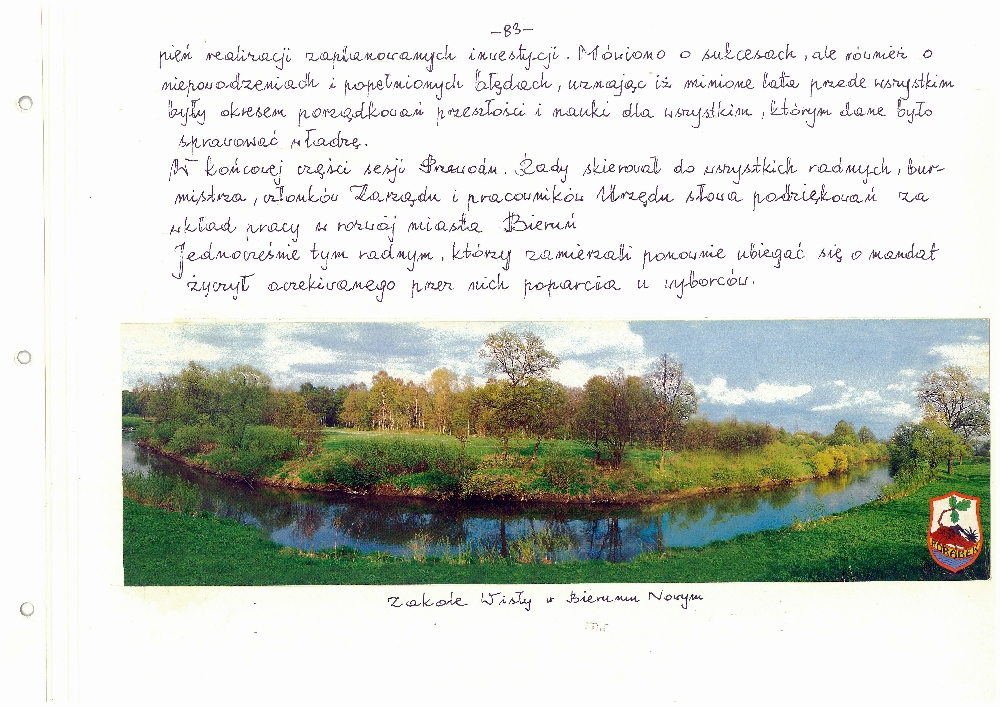 -83-
pień realizacji zaplanowanych inwestycji. Mówiono o sukcesach, ale również o
niepowodzeniach i popełnionych błędach, uznając iż minione lata przede wszystkim
były okresem porządkowań przeszłości i nauki dla wszystkim, którym dane było
sprawować władzę.
W końcowej części sesji Przewodn. Rady skierował do wszystkich radnych, bur-
mistrza, członków Zarządu i pracowników Urzędu słowa podziękowań za
wkład pracy w rozwój miasta Bieruń
Jednocześnie tym radnym, którzy zamierzali ponownie ubiegać się o mandat
życzył oczekiwanego przez nich poparcia u wyborców.
Zakole Wisły w Bieruniu Nowym